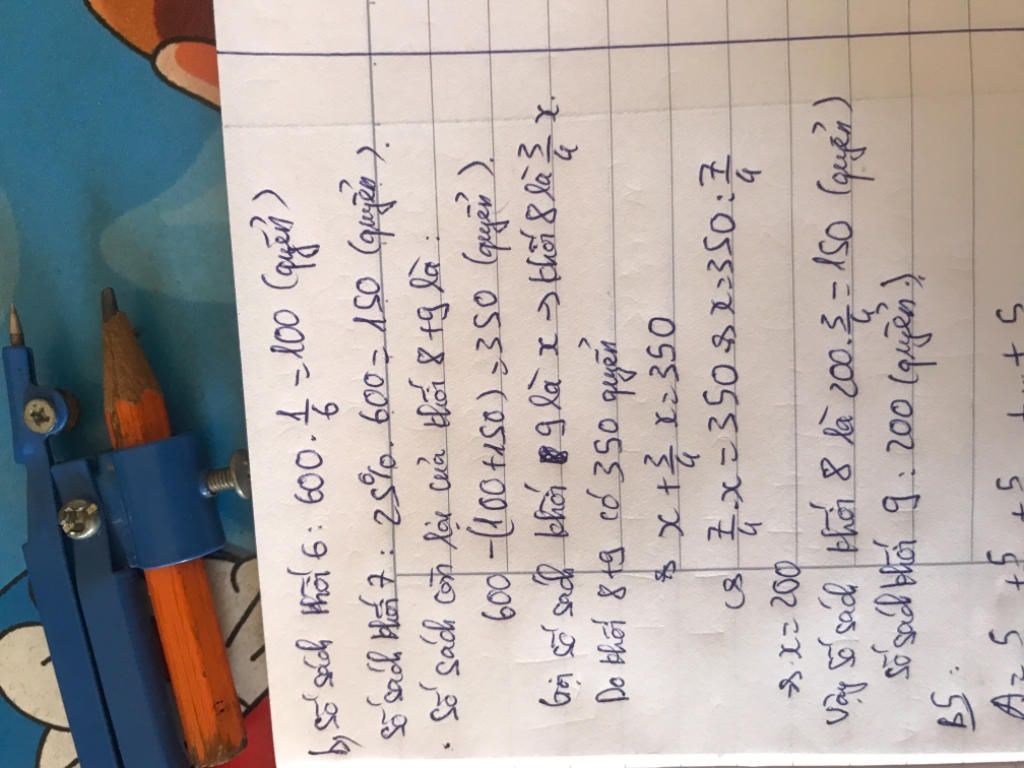 b, Số sách khối 6 : 600 . 1/6 = 100 (quyển)
Số sách khối 7 : 25% . 600 = 150 (quyển).
. Số sách còn lại của khối 8 + 9 là :
600 - (100 + 150) = 350 (quyển).
Gọi số sách khối 9 là x → khối 8 là 3/4 x.
Do khối 8 + 9 có 350 quyển
⇔ x + 3/4 x = 350
⇔ 7/4 . x = 350 ⇔ x = 350 : 7/4
⇔ x = 200
Vậy số sách khối 8 là 200 . 3/4 = 150 (quyển)
số sách khối 9 : 200 (quyển.)
B5 :
A = 5 + 5 + 5